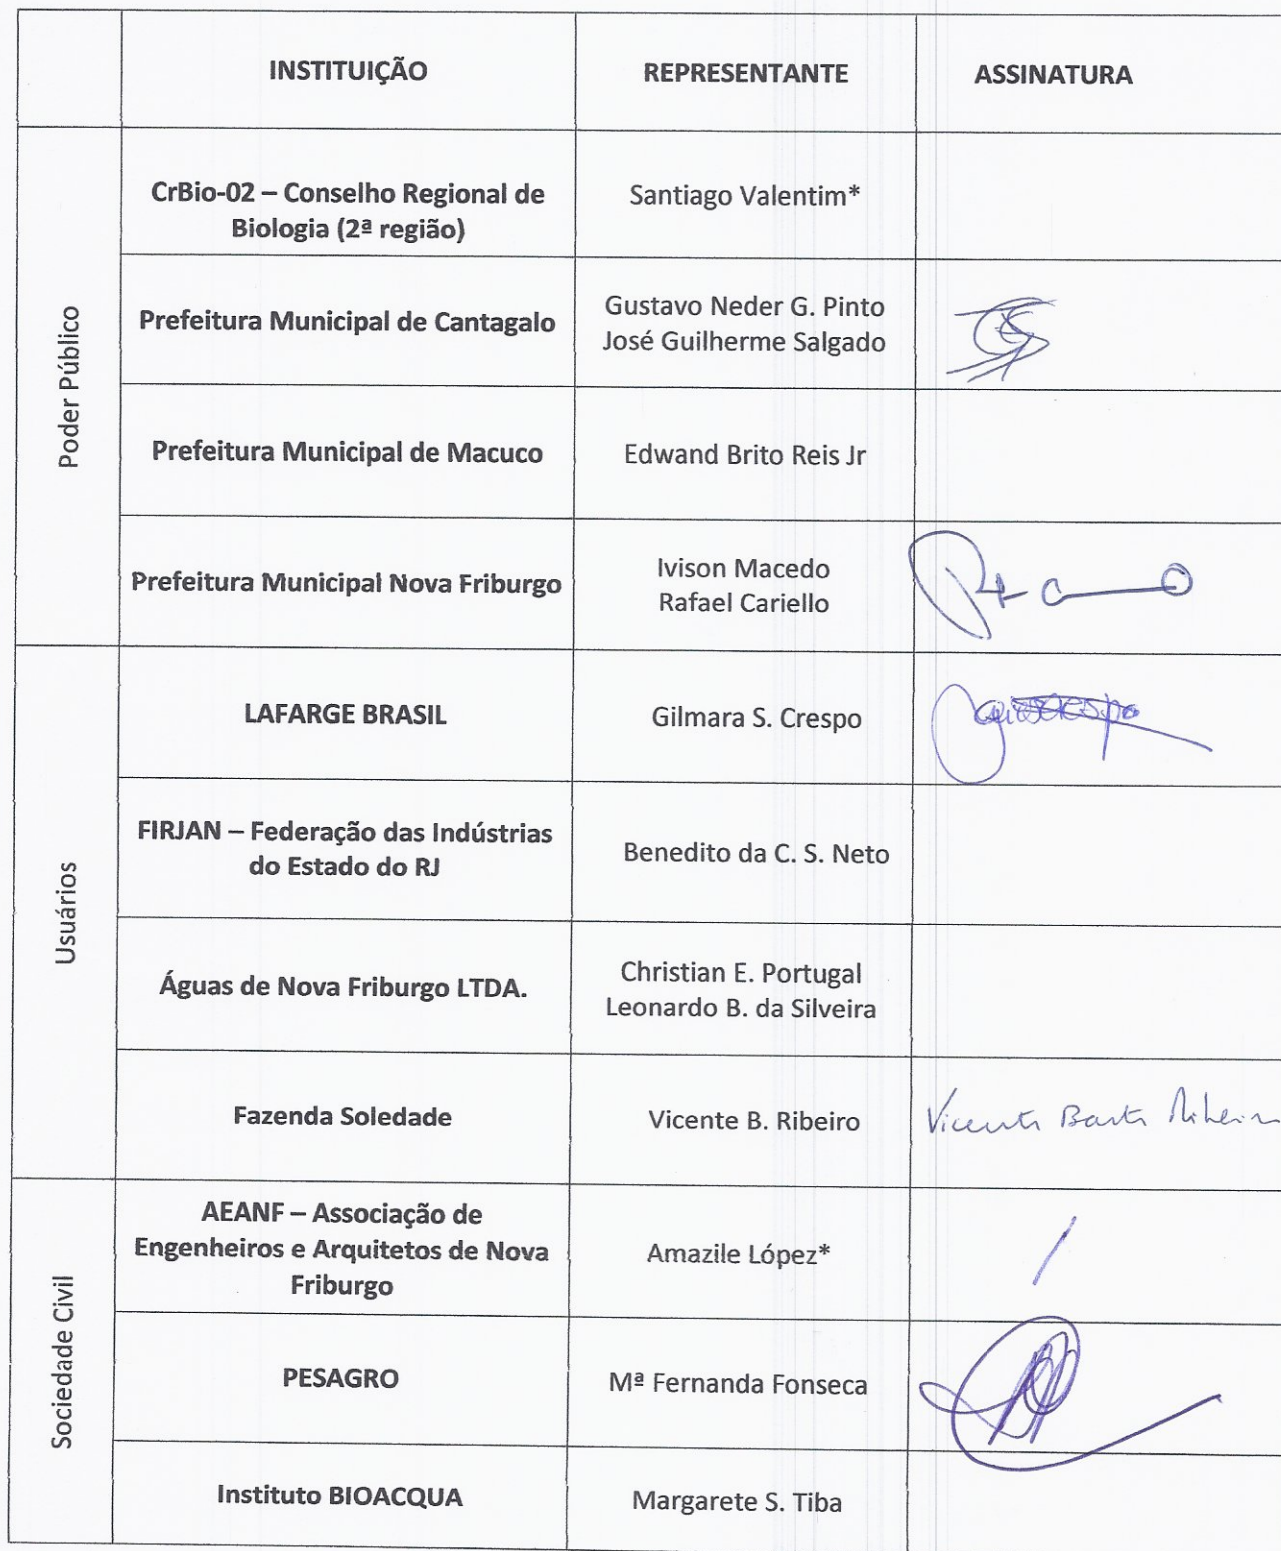 INSTITUIÇÃO
REPRESENTANTE
ASSINATURA
Poder Público
CrBio-02 – Conselho Regional de
Biologia (2ª região)
Santiago Valentim*
Prefeitura Municipal de Cantagalo
Gustavo Neder G. Pinto
José Guilherme Salgado
Prefeitura Municipal de Macuco
Edwand Brito Reis Jr
Prefeitura Municipal Nova Friburgo
Ivison Macedo
Rafael Cariello
Usuários
LAFARGE BRASIL
Gilmara S. Crespo
FIRJAN – Federação das Indústrias
do Estado do RJ
Benedito da C. S. Neto
Águas de Nova Friburgo LTDA.
Christian E. Portugal
Leonardo B. da Silveira
Fazenda Soledade
Vicente B. Ribeiro
Vicente Ribeiro
Sociedade Civil
AEANF – Associação de
Engenheiros e Arquitetos de Nova
Friburgo
Amazile López*
PESAGRO
Mª Fernanda Fonseca
Instituto BIOACQUA
Margarete S. Tiba